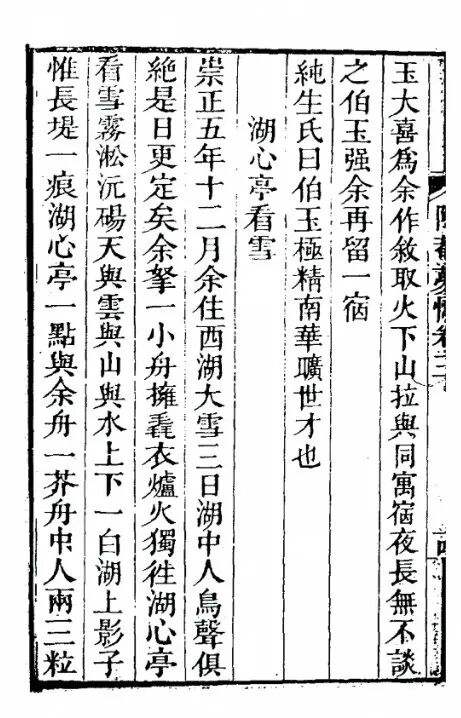 陶菴夢憶卷
玉大喜爲余作敘取火下山拉與同寓宿夜長無不談
之伯玉强余再留一宿
純生氏曰伯玉極精南華曠世才也
湖心亭看雪
崇正五年十二月余住西湖大雪三日湖中人鳥聲俱
絶是日更定矣余拏一小舟擁毳衣爐火獨徃湖心亭
看雪霧淞沅碭天與雲與山與水上下一白湖上影子
惟長堤一痕湖心亭一點與余舟一芥舟中人兩三粒